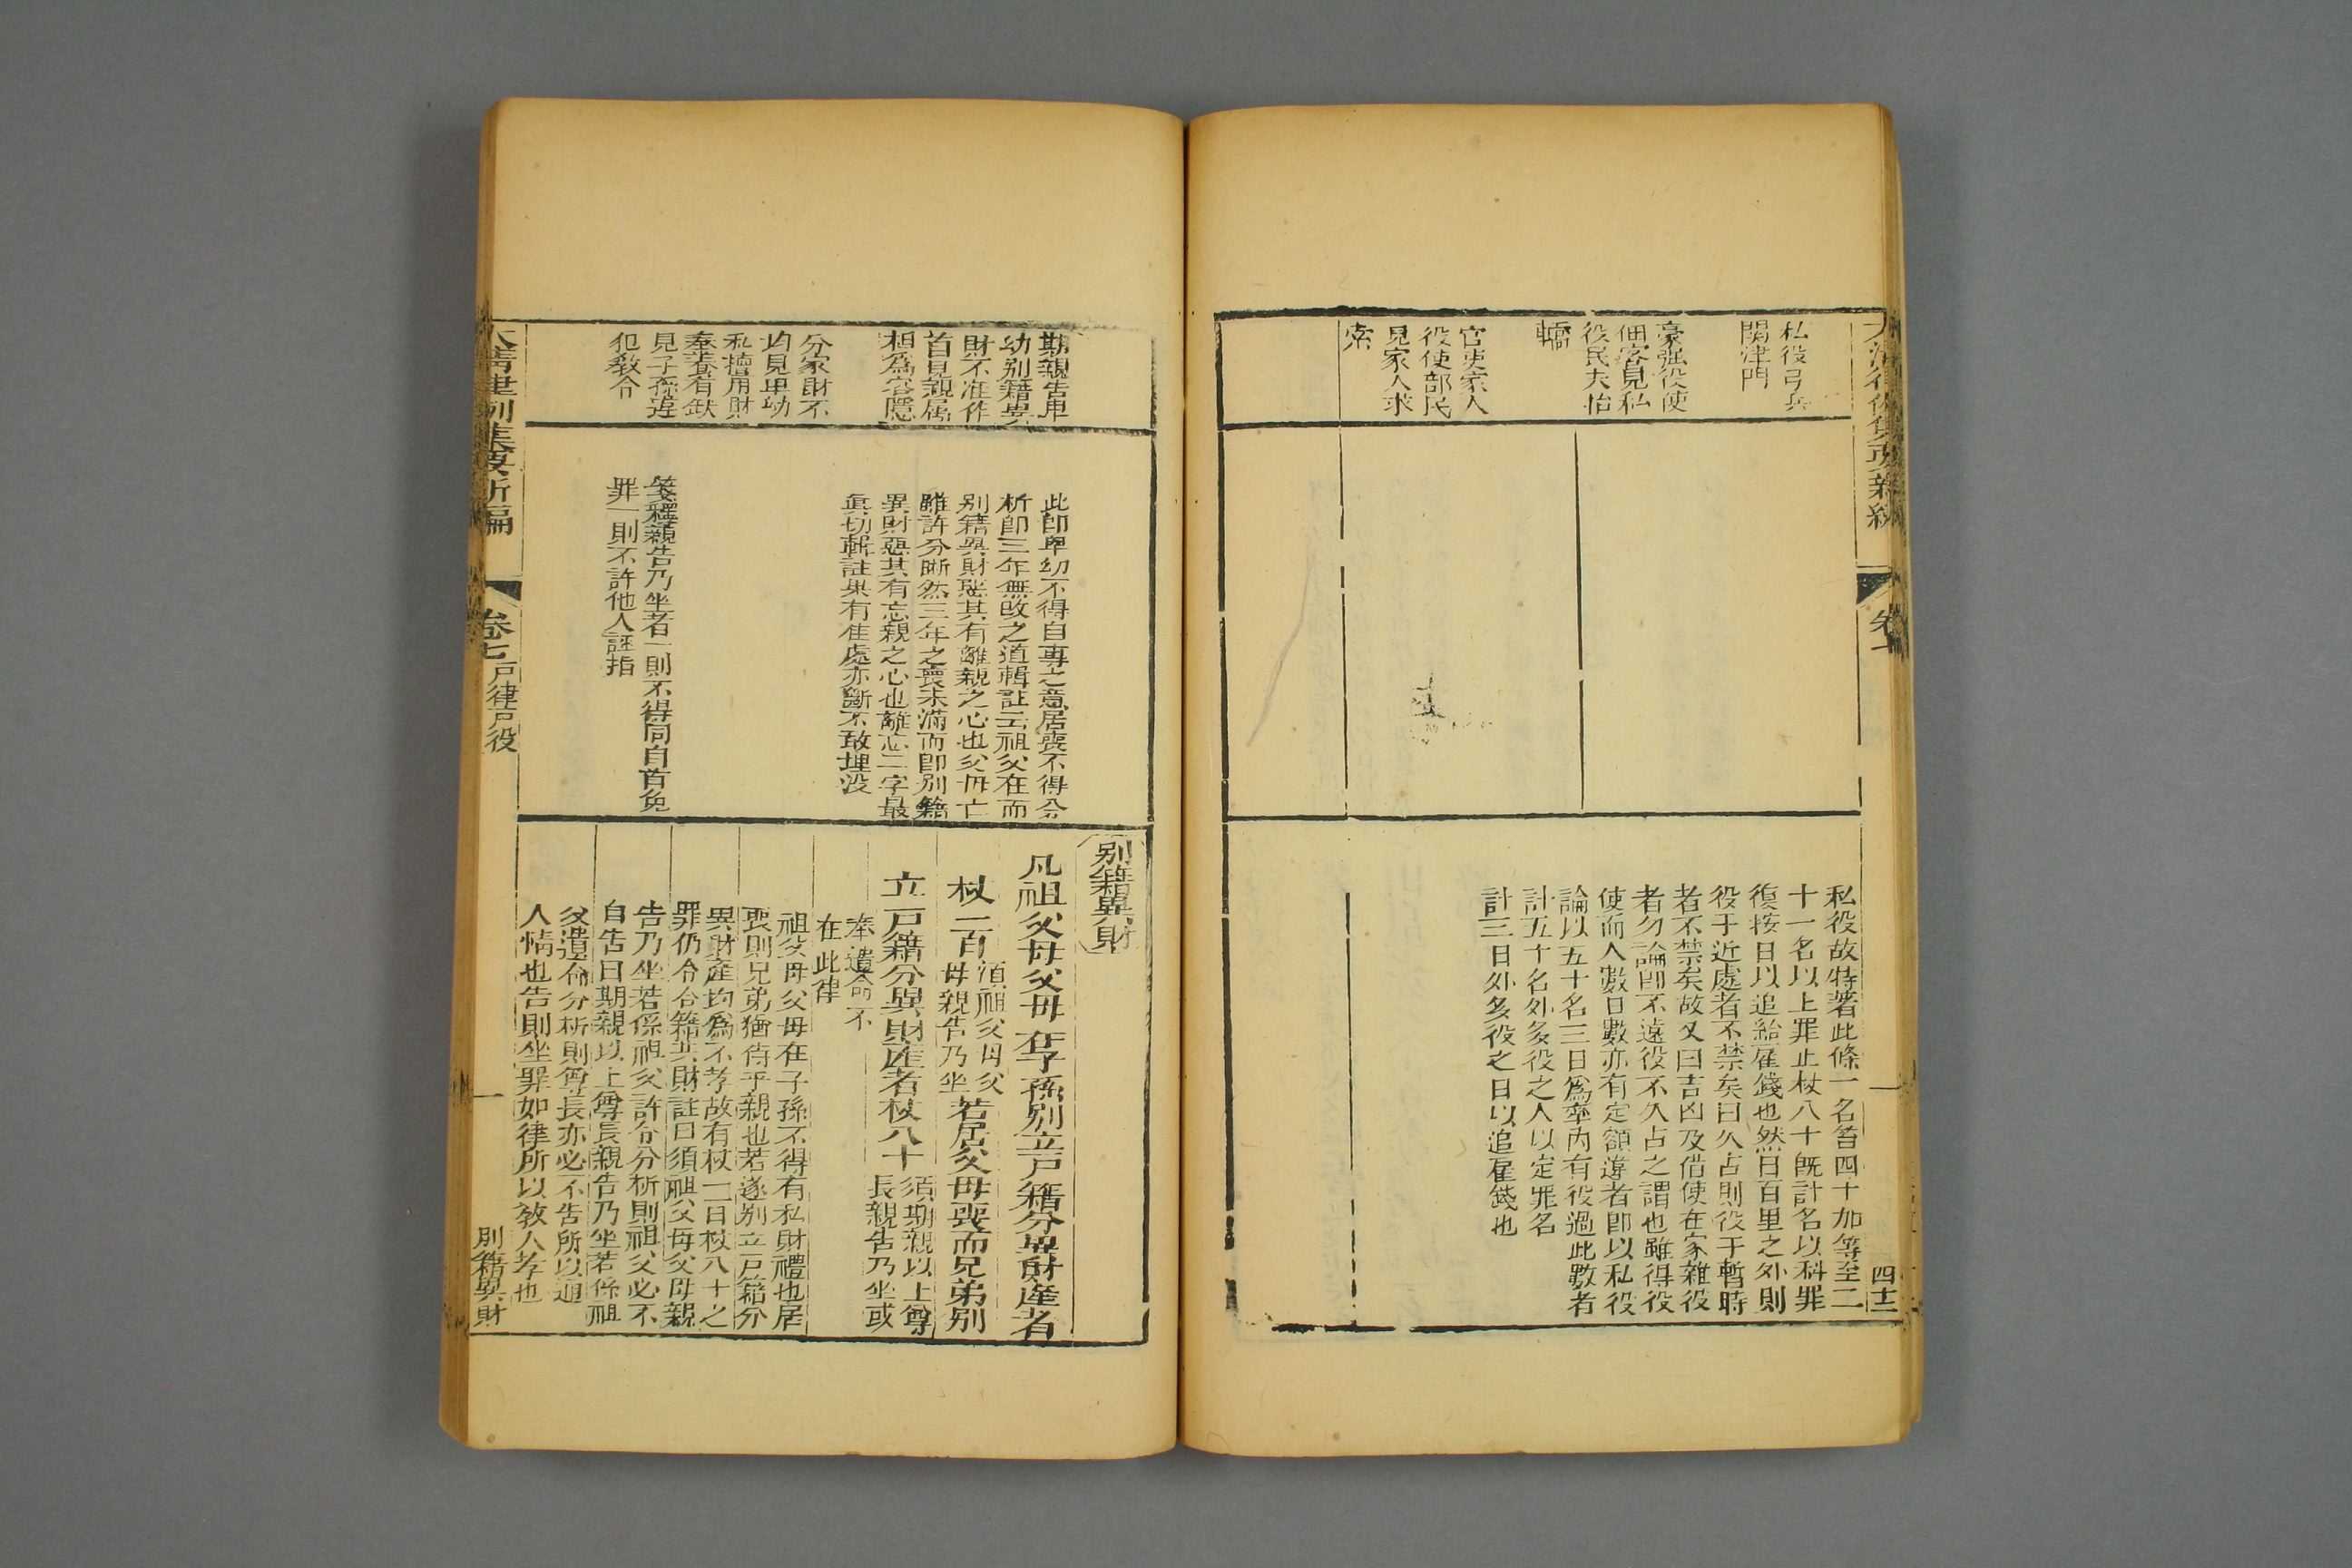 大清律例集要新編
卷七
四十三
私役弓兵
關津門
豪強役使
佃客見私
役民夫抬
轎
官吏家人
役使部民
見家人求
索
私役故特著此條一名笞四十加等至二
十一名以上罪止杖八十既計名以科罪
復按日以追給雇錢也然曰百里之外則
役于近處者不禁矣曰久占則役于暫時
者不禁矣故又曰吉凶及借使在家雜役
者勿論卽不遠役不久占之謂也雖得役
使而人數日數亦有定額違者卽以私役
論以五十名三日爲率內有役過此數者
計五十名外多役之人以定罪名
計三日外多役之日以追雇錢也
期親告卑
幼别籍異
財不准作
自首見親属
相爲容隱
分家財不
均見卑幼
私擅用財
奉養有缺
見子孫違
犯教令
此卽卑幼不得自專之意居喪不得分
析卽三年無改之道輯註云祖父在而
别籍異財惡其有離親之心也父母亡
雖許分晰然三年之喪未滿而卽别籍
異財惡其有忘親之心也離忘二字最
眞切輯註果有佳處亦斷不敢埋没
箋釋親告乃坐者一則不得同自首免
罪一則不許他人誣指
别籍異財
凡祖父母父母在子孫别立戸籍分異財産者
杖一百須祖父母父
母親告乃坐若居父母喪而兄弟别
立戸籍分異財産者杖八十須期親以上尊
長親告乃坐或
奉遺命不
在此律
祖父母父母在子孫不得有私財禮也居
喪則兄弟猶侍乎親也若遂别立戸籍分
異財産均爲不孝故有杖一百杖八十之
罪仍令合籍共財註曰須祖父母父母親
告乃坐若係祖父許令分析則祖父必不
自告曰期親以上尊長親告乃坐若係祖
父遺命分析則尊長亦必不告所以通
人情也告則坐罪如律所以教人孝也
大清律例集要新編
卷七
戸律戸役
一
別籍異財